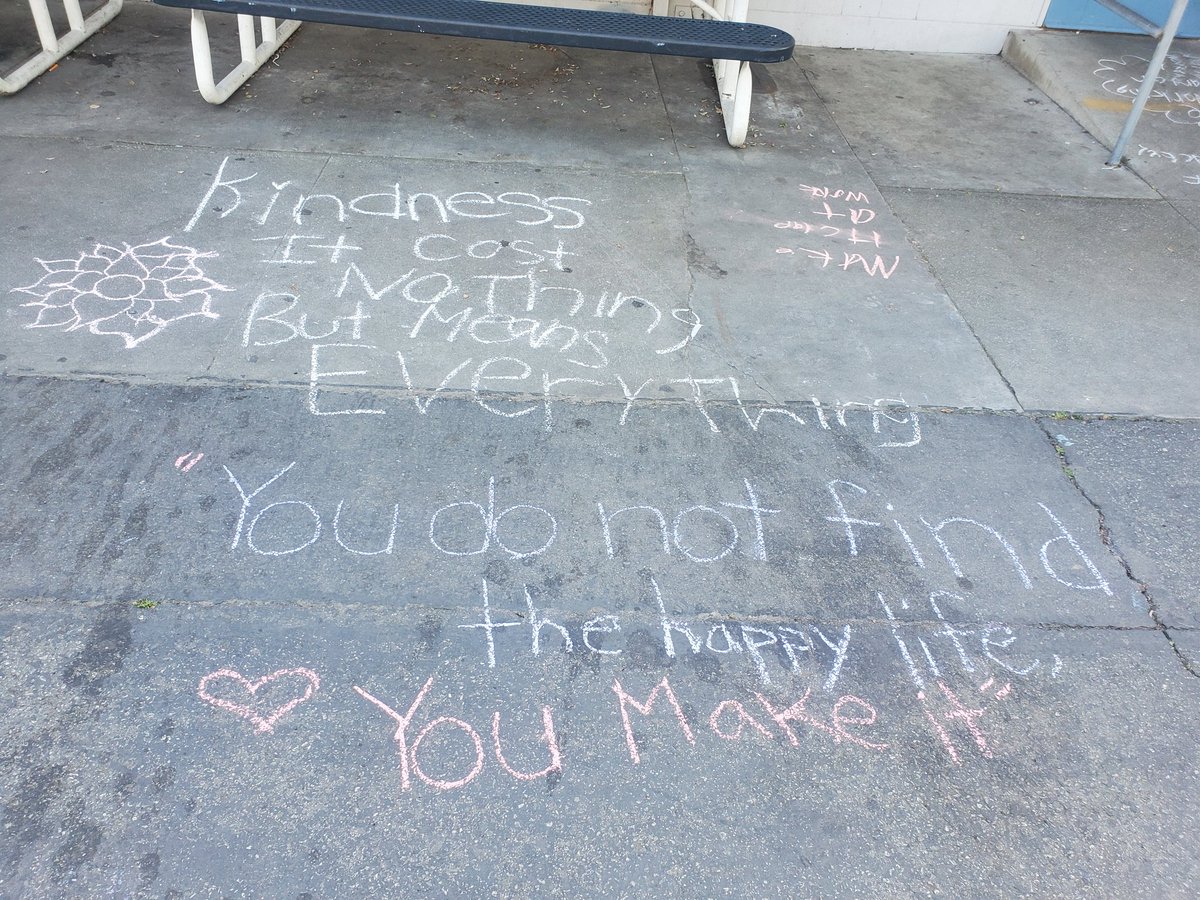 Kindness
It cost
NoThing
But Means
EveryThing
"You do not find
the happy life,
You Make it"
at
Work